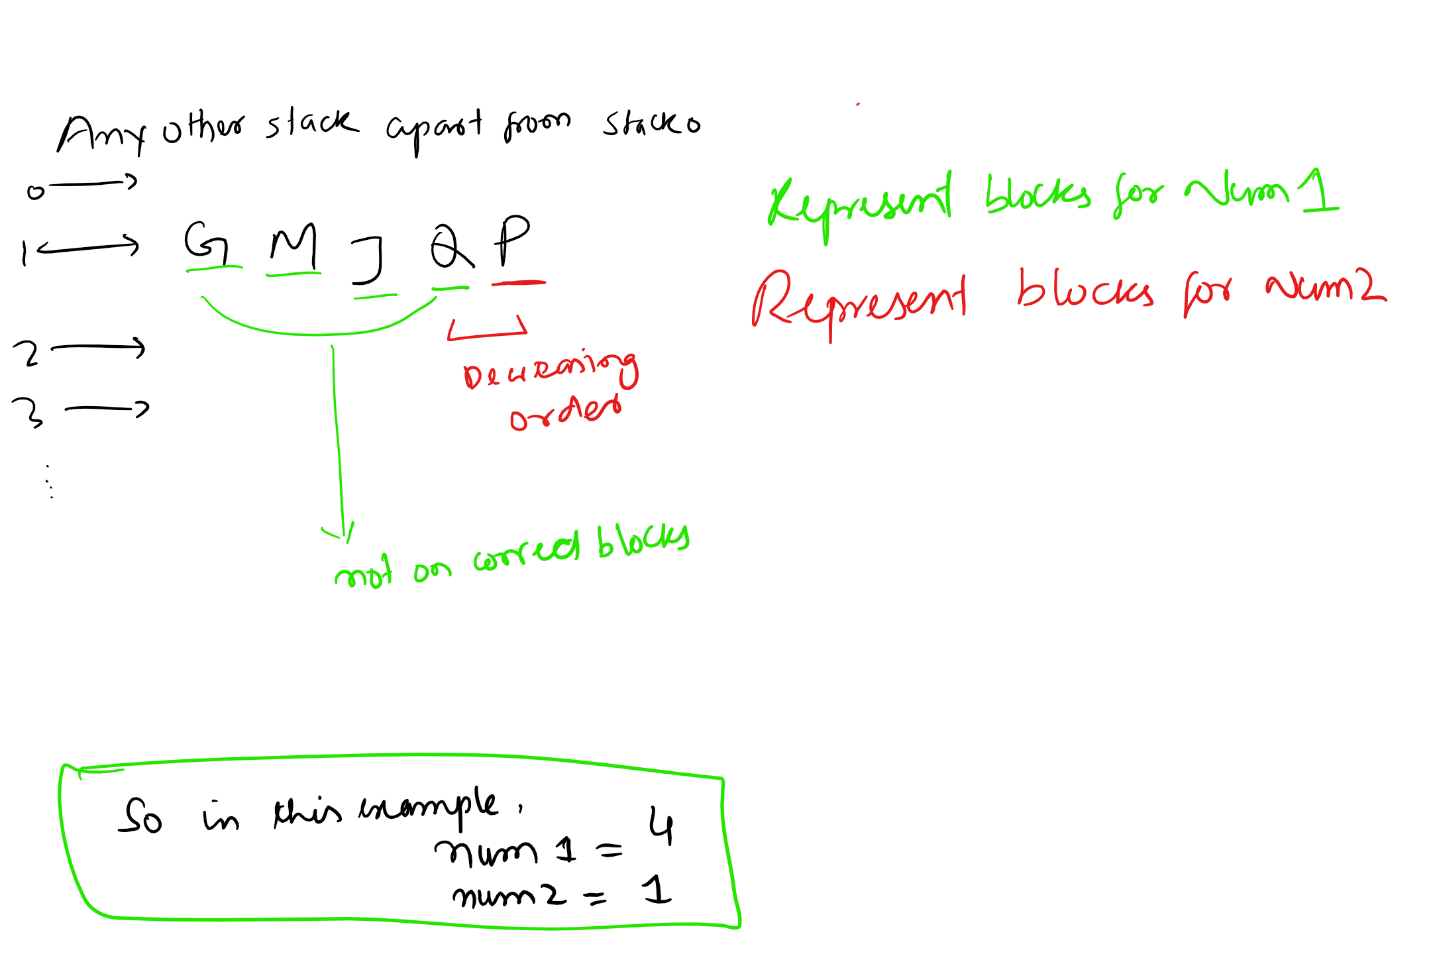 Any other stack apart from stack 0
0
1 G M J Q P
2
3
Decreasing
order
not on correct blocks
Represent blocks for Num1
Represent blocks for Num2
So in this example,
num1 = 4
num2 = 1